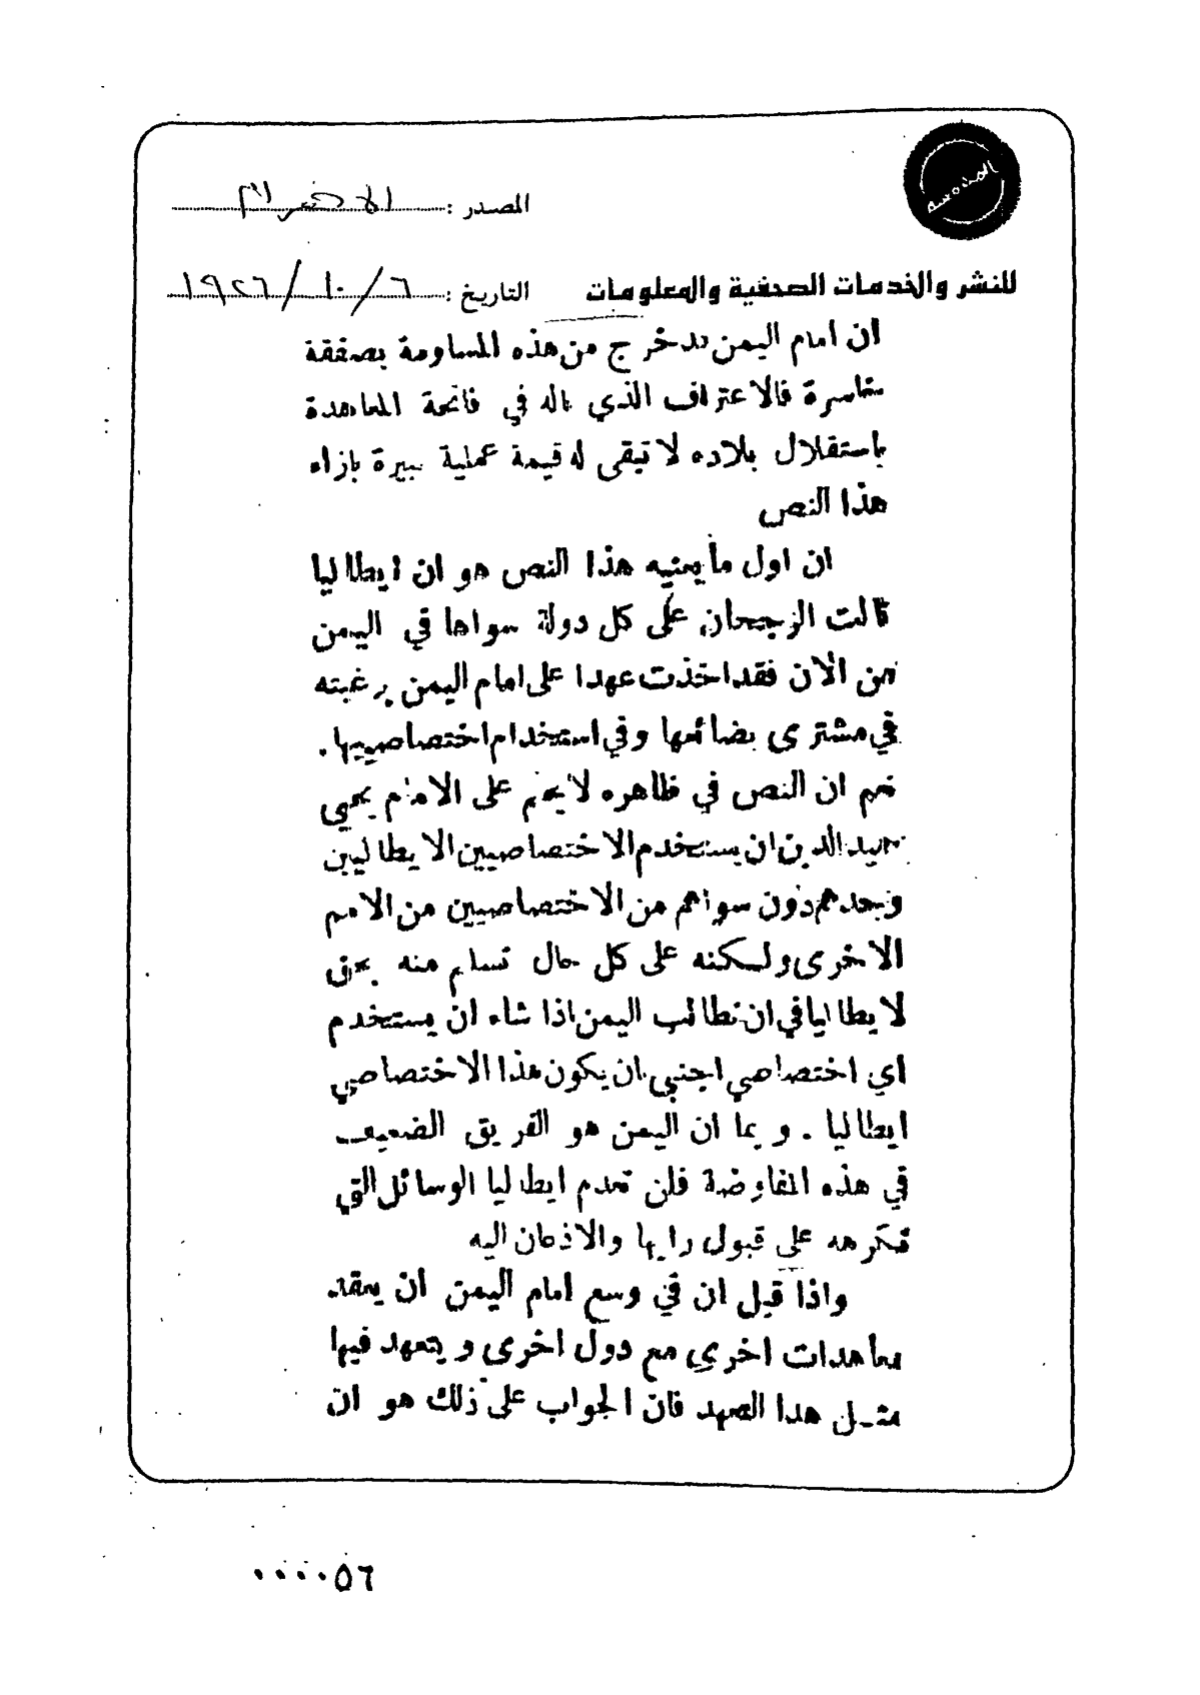 المصدر : الاهرام
للنشر والخدمات الصحفية والمعلومات التاريخ : ٦ / ١٠ / ١٩٢٦
ان امام اليمن قد خرج من هذه المساومة بصفقة
خاسرة فالاعتراف الذي ناله في فاتحة المعاهدة
باستقلال بلاده لا تبقى له قيمة عملية كبيرة بازاء
هذا النص
ان اول ما يعنيه هذا النص هو ان ايطاليا
نالت الرجحان على كل دولة سواها في اليمن
من الان فقد اخذت عهدا على امام اليمن برغبته
في مشترى بضائعها وفي استخدام اختصاصييها .
نعم ان النص في ظاهره لا يحتم على الامام يحيى
حميد الدين ان يستخدم الاختصاصيين الايطاليين
وحدهم دون سواهم من الاختصاصيين من الامم
الاخرى ولكنه على كل حال تسليم منه بحق
لايطاليا في ان تطالب اليمن اذا شاء ان يستخدم
اي اختصاصي اجنبي ان يكون هذا الاختصاصي
ايطاليا . وبما ان اليمن هو الفريق الضعيف
في هذه المفاوضة فلن تعدم ايطاليا الوسائل التي
تكرهه على قبول رايها والاذعان اليه
واذا قيل ان في وسع امام اليمن ان يعقد
معاهدات اخرى مع دول اخرى ويتعهد فيها
مثل هذا العهد فان الجواب على ذلك هو ان
٠٠٠٠٥٦